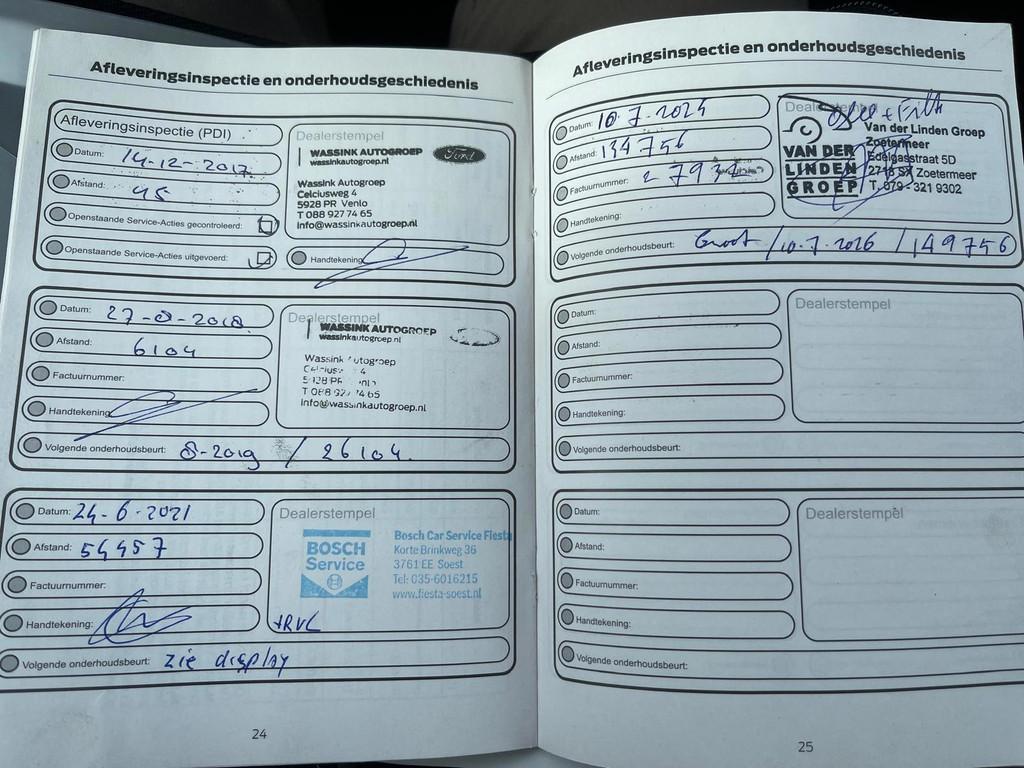 Afleveringsinspectie en onderhoudsgeschiedenis
Afleveringsinspectie (PDI)
Datum: 14-12-2017
Afstand: 45
Openstaande Service-Acties gecontroleerd:
Openstaande Service-Acties uitgevoerd:
Dealerstempel
WASSINK AUTOGROEP
wassinkautogroep.nl
Ford
Wassink Autogroep
Celciusweg 4
5928 PR Venlo
T 088 927 74 65
Info@wassinkautogroep.nl
Handtekening:
Datum: 27-8-2018
Afstand: 6104
Factuurnummer:
Handtekening:
Dealerstempel
WASSINK AUTOGROEP
wassinkautogroep.nl
Wassink Autogroep
4
T 088 927 74 65
Info@wassinkautogroep.nl
Volgende onderhoudsbeurt: 8-2019 / 26104
Datum: 24-6-2021
Afstand: 54457
Factuurnummer:
Handtekening:
Dealerstempel
BOSCH
Service
Bosch Car Service Fiesta
Korte Brinkweg 36
3761 EE Soest
Tel: 035-6016215
www.fiesta-soest.nl
+RVL
Volgende onderhoudsbeurt: zie display
24
Afleveringsinspectie en onderhoudsgeschiedenis
Datum: 10-7-2024
Afstand: 134756
Factuurnummer:
Handtekening:
Dealerstempel
VAN DER
LINDEN
GROEP
Van der Linden Groep
Zoetermeer
Edelgasstraat 5D
2718 SX Zoetermeer
T. 079 - 321 9302
Volgende onderhoudsbeurt: Groot / 10-7-2026 / 149756
Datum:
Afstand:
Factuurnummer:
Handtekening:
Dealerstempel
Volgende onderhoudsbeurt:
Datum:
Afstand:
Factuurnummer:
Handtekening:
Dealerstempel
Volgende onderhoudsbeurt:
25